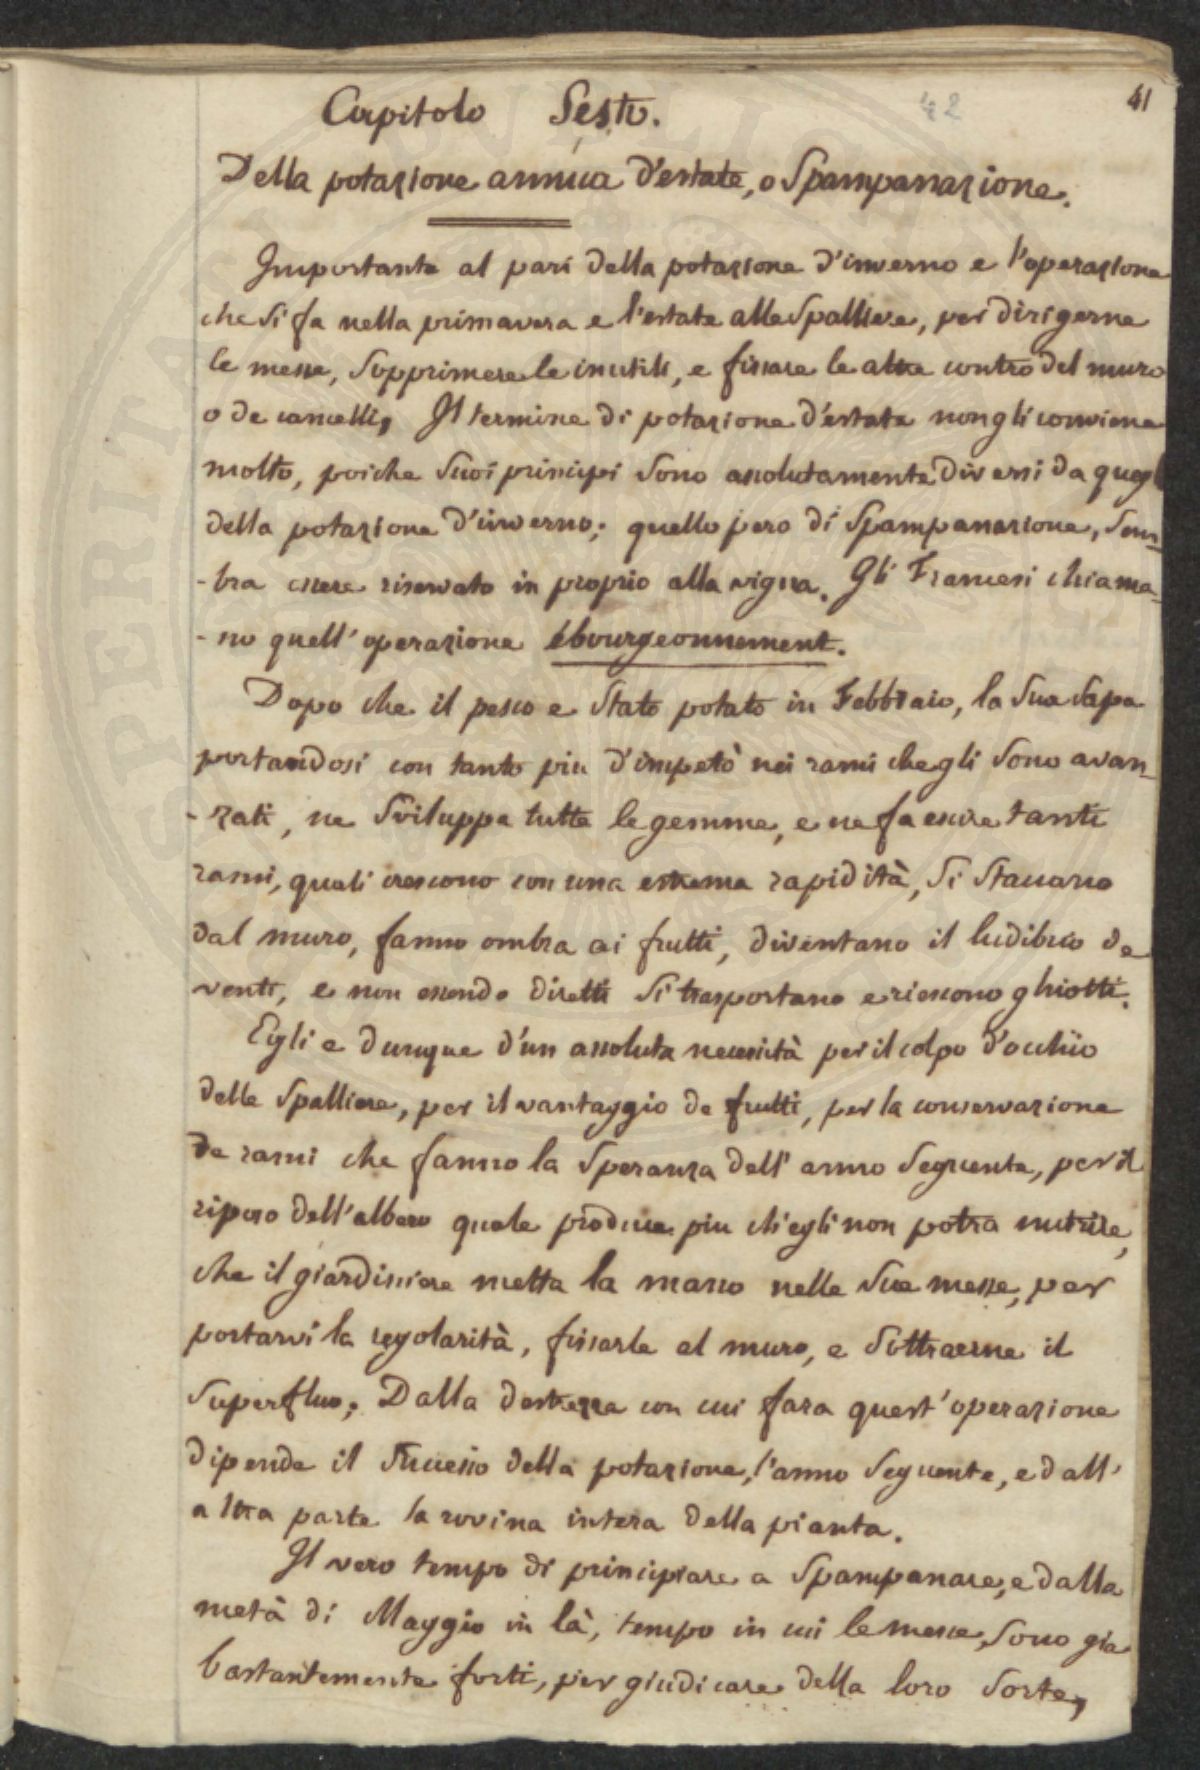 42
41
Capitolo Sesto.
Della potazione annua d'estate, o Spampanazione.
Importante al pari della potazione d'inverno e l'operazione
che si fa nella primavera e l'estate alle Spalliere, per dirigerne
le messe, Sopprimere le inutili, e fissare le altre contro del muro
o de cancelli, Il termine di potazione d'estate non gli conviene
molto, poiche Suoi principi Sono assolutamente diversi da quegl
della potazione d'inverno; quello pero di Spampanazione, Sem-
-bra essere riservato in proprio alla vigna. Gli Francesi chiama-
-no quell'operazione ébourgeonnement.
Dopo che il pesco e Stato potato in Febbraio, la Sua Sapa
portandosi con tanto piu d'impetò nei rami che gli Sono avan-
-zati, ne Sviluppa tutte le gemme, e ne fa escire tanti
rami, quali crescono con una estrema rapidità, Si Staccano
dal muro, fanno ombra ai frutti, diventano il ludibrio de
venti, e non essendo diretti Si trasportano e riescono ghiotti.
Egli e dunque d'un assoluta necessità per il colpo d'occhio
delle Spalliere, per il vantaggio de frutti, per la conservazione
de rami che fanno la Speranza dell'anno Seguente, per il
riposo dell'albero quale produce piu ch'egli non potra nutrire,
che il giardiniere metta la mano nelle Sue messe, per
portarvi la regolarità, fissarle al muro, e Sottraerne il
Superfluo; Dalla destrezza con cui fara quest'operazione
dipende il Successo della potazione, l'anno Seguente, e dall'
altra parte la rovina intera della pianta.
Il vero tempo di principiare a Spampanare, e dalla
metà di Maggio in là, tempo in cui le messe, Sono gia
bastantemente forti, per giudicare della loro Sorte,